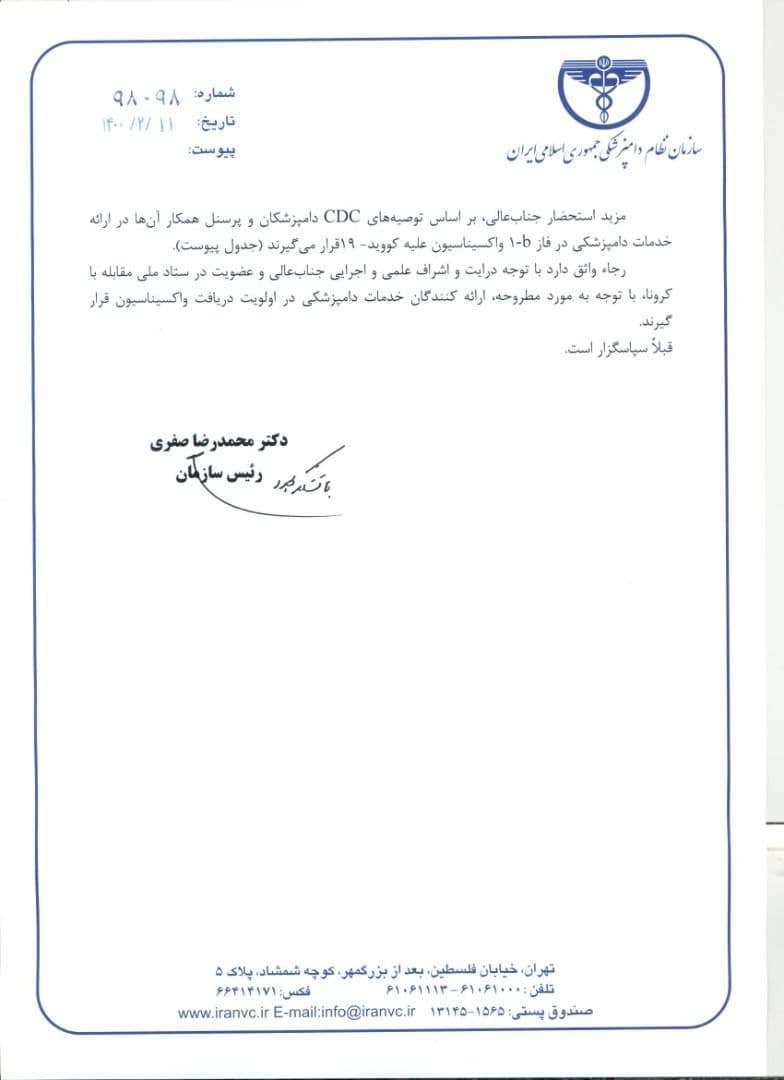 سازمان نظام دامپزشکی جمهوری اسلامی ایران
شماره: ۹۸۰۹۸
تاریخ: ۱۴۰۰/۲/۱۱
پیوست:
مزید استحضار جناب‌عالی، بر اساس توصیه‌های CDC دامپزشکان و پرسنل همکار آن‌ها در ارائه
خدمات دامپزشکی در فاز ۱-b واکسیناسیون علیه کووید- ۱۹قرار می‌گیرند (جدول پیوست).
رجاء واثق دارد با توجه درایت و اشراف علمی و اجرایی جناب‌عالی و عضویت در ستاد ملی مقابله با
کرونا، با توجه به مورد مطروحه، ارائه کنندگان خدمات دامپزشکی در اولویت دریافت واکسیناسیون قرار
گیرند.
قبلاً سپاسگزار است.
دکتر محمدرضا صفری
رئیس سازمان
تهران، خیابان فلسطین، بعد از بزرگمهر، کوچه شمشاد، پلاک ۵
تلفن: ۶۱۰۶۱۰۰۰ - ۶۱۰۶۱۱۱۳ فکس: ۶۶۴۱۴۱۷۱
صندوق پستی: ۱۵۶۵-۱۳۱۴۵ www.iranvc.ir E-mail:info@iranvc.ir